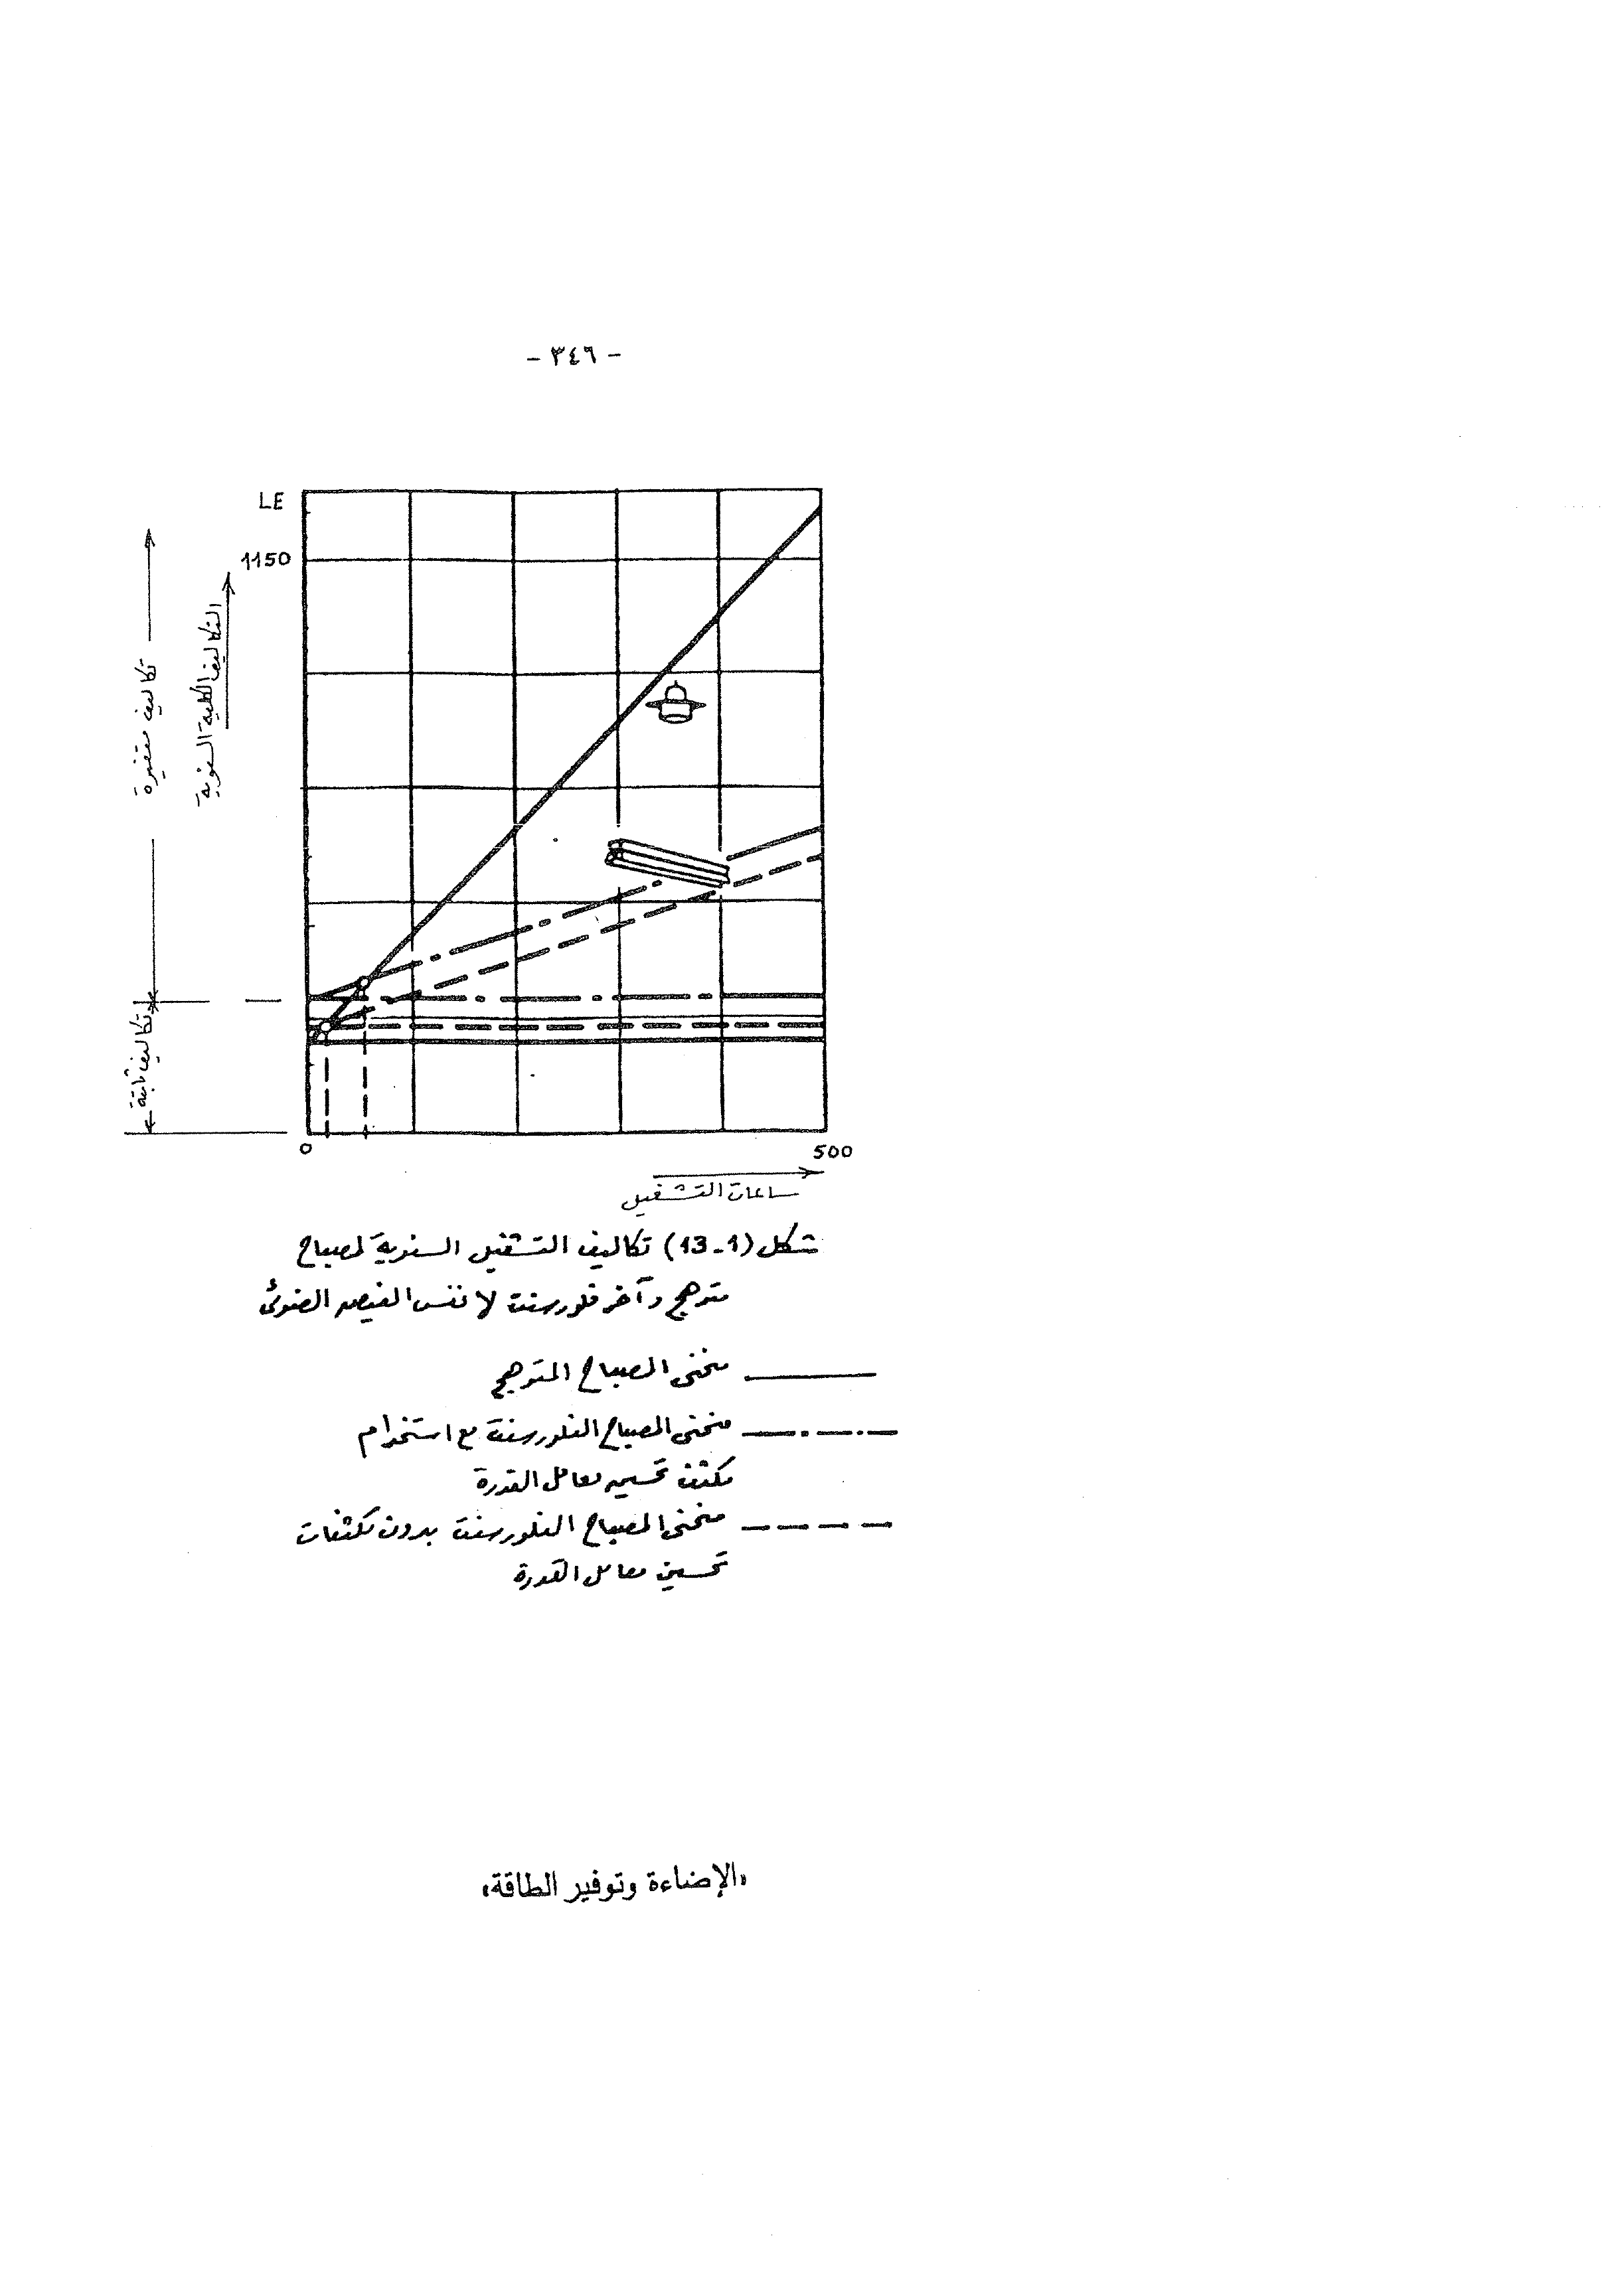 - ٣٤٦ -
LE
1150
التكاليف الكلية السنوية
تكاليف متغيرة
تكاليف ثابتة
0
500
ساعات التشغيل
شكل (1-13) تكاليف التشغيل السنوية لمصباح
متوهج وآخر فلورسنت لا نفس الفيض الضوئى
منحنى المصباح المتوهج
منحنى المصباح الفلورسنت مع استخدام
مكثف تحسين معامل القدرة
منحنى المصباح الفلورسنت بدون مكثفات
تحسين معامل القدرة
«الإضاءة وتوفير الطاقة»